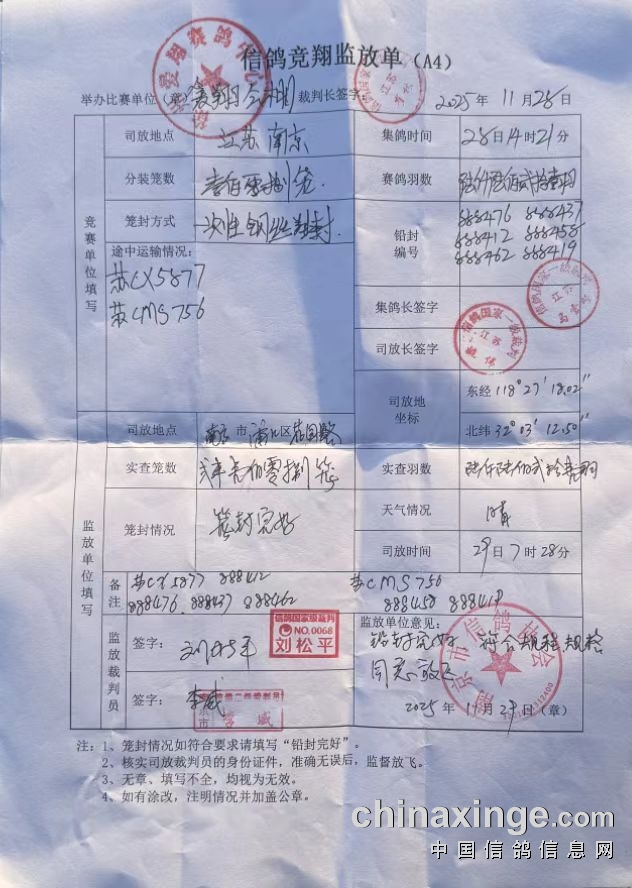 信鸽竞翔监放单（A4）
举办比赛单位（章） 裁判长签字 2025年 11月 28日
司放地点 江苏 南京 集鸽时间 28日14时21分
分装笼数 赛鸽羽数
笼封方式 一次性钢丝封 铅封编号 888476 888437
888412 888458
888462 888419
竞赛单位填写
途中运输情况：
苏CX5877
苏CMS756
集鸽长签字
司放长签字
司放地坐标 东经 118°27′18.02″
北纬 32°03′12.50″
司放地点 南京市浦口区
实查笼数 实查羽数
监放单位填写
笼封情况 签封完好 天气情况 晴
司放时间 29日7时28分
备注 苏CX5877 888412 苏CMS756
888476 888437 888462 888458 888419
监放裁判员 签字：刘松平 监放单位意见：
信鸽国家级裁判
NO.0068
刘松平
铅封完好 符合规程规格
同意放飞
签字：李威
李威
2025年 11月 29日（章）
注：1、笼封情况如符合要求请填写“铅封完好”。
2、核实司放裁判员的身份证件，准确无误后，监督放飞。
3、无章、填写不全，均视为无效。
4、如有涂改，注明情况并加盖公章。
chinaxinge.com
中国信鸽信息网